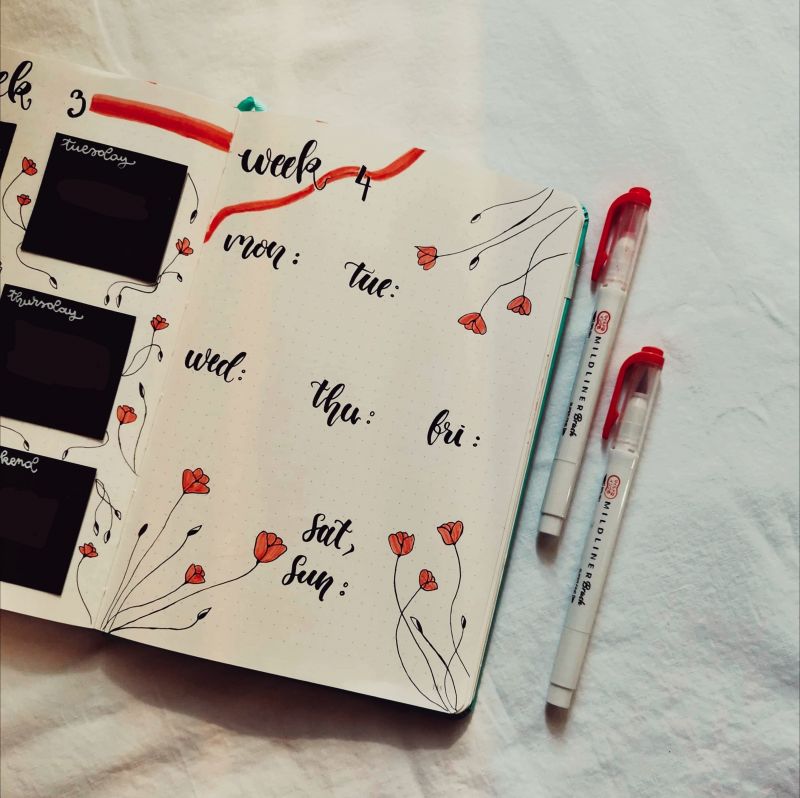 ek 3
tuesday
thursday
kend
week 4
mon:
tue:
wed:
thu:
fri:
sat,
sun:
MILDLINER Brush
MILDLINER Brush